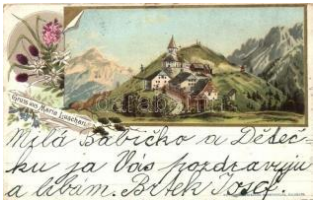 Gruss aus Maria Luschari
Milá Babičko a Děteč-
ku ja Vás pozdravuju
a líbám. Brtek Josef.